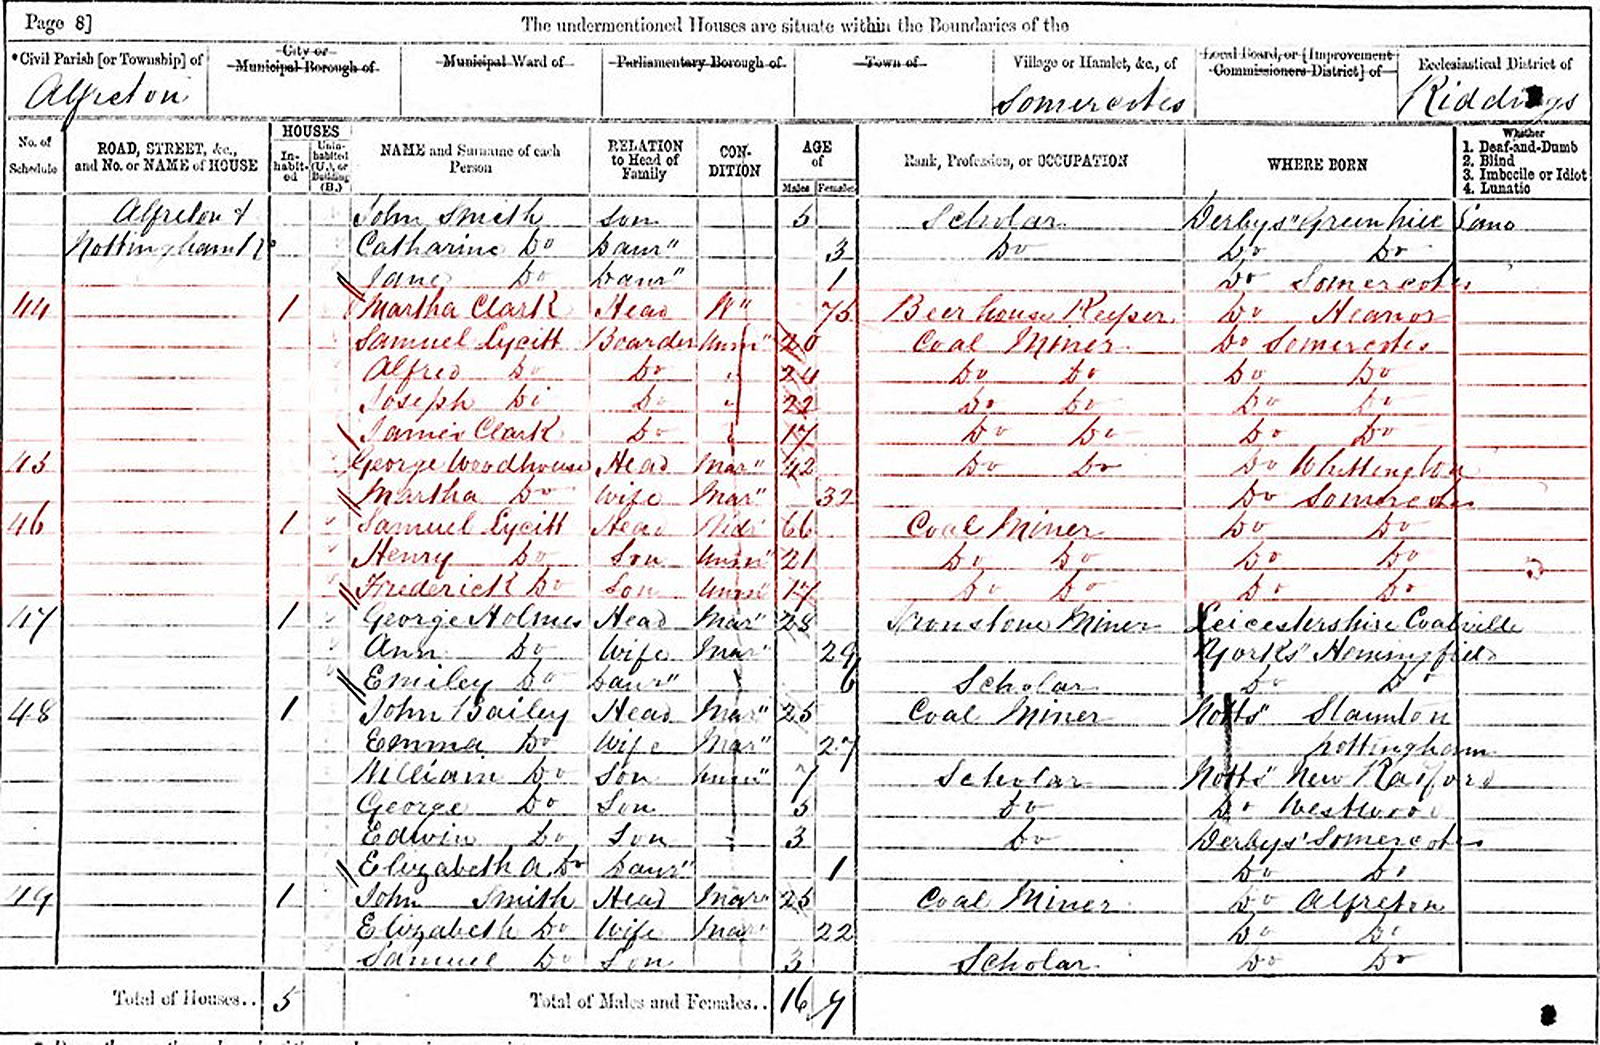 Page 8] The undermentioned Houses are situate within the Boundaries of the
*Civil Parish [or Township] of City or Municipal Borough of Municipal Ward of Parliamentary Borough of Town of Village or Hamlet, &c., of Local Board, or [Improvement Commissioners District] of Ecclesiastical District of
Alfreton Somercotes Riddings
No. of Schedule ROAD, STREET, &c., and No. or NAME of HOUSE HOUSES In-habit-ed Unin-habited (U.), or Building (B.) NAME and Surname of each Person RELATION to Head of Family CON-DITION AGE of Males Females Rank, Profession, or OCCUPATION WHERE BORN Whether 1. Deaf-and-Dumb 2. Blind 3. Imbecile or Idiot 4. Lunatic
Alfreton & John Smith Son 5 Scholar Derbys" Greenhill Lane
Nottingham Rº Catharine Do Daur" 3 Do Do Do
Jane Do Daur" 1 Do Somercotes
44 1 Martha Clark Head W" 75 Beerhouse Keeper Do Heanor
Samuel Lycitt Boarder Unm" 26 Coal Miner Do Somercotes
Alfred Do Do " 24 Do Do Do Do
Joseph Do Do " 22 Do Do Do Do
James Clark Do " 17 Do Do Do Do
45 George Woodhouse Head Mar" 42 Do Do Do Whittington
Martha Do Wife Mar" 32 Do Somercotes
46 1 Samuel Lycitt Head Widr 66 Coal Miner Do Do
Henry Do Son Unm" 21 Do Do Do Do
Frederick Do Son Unm" 17 Do Do Do Do
47 1 George Holmes Head Mar" 28 Ironstone Miner Leicestershire Coalville
Ann Do Wife Mar" 29 Yorks" Hemingfield
Emiley Do Daur" 6 Scholar Do Do
48 1 John Bailey Head Mar" 25 Coal Miner Notts" Staunton
Emma Do Wife Mar" 27 Nottingham
William Do Son Unm" 7 Scholar Notts" New Radford
George Do Son 5 Do Do Westwood
Edwin Do Son 3 Do Derbys" Somercotes
Elizabeth A Do Daur" 1 Do Do
49 1 John Smith Head Mar" 25 Coal Miner Do Alfreton
Elizabeth Do Wife Mar" 22 Do Do
Samuel Do Son 3 Scholar Do Do
Total of Houses.. 5 Total of Males and Females.. 16 9